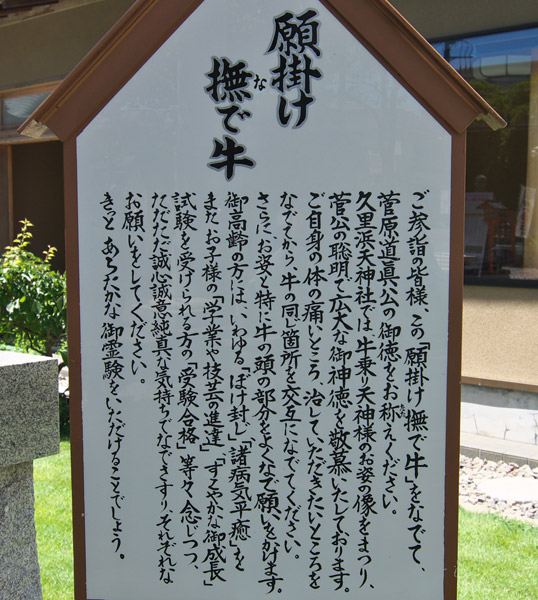 願掛け
撫で牛
な
ご参詣の皆様、この「願掛け撫で牛」をなでて、
菅原道真公の御徳をお称えください。
たた
久里浜天神社では、牛乗り天神様のお姿の像をまつり、
菅公の聡明で広大な御神徳を敬慕いたしております。
ご自身の体の痛いところ、治していただきたいところを
なでてから、牛の同じ箇所を交互になでてください。
さらに、お姿と特に牛の頭の部分をよくなで願いをかけます。
御高齢の方には、いわゆる「ぼけ封じ」「諸病気平癒」を
またお子様の「学業や技芸の進達」「すこやかな御成長」
試験を受けられる方の「受験合格」等々、念じつつ、
ただただ誠心誠意純真な気持ちでなでさすり、それぞれな
お願いをしてください。
きっと あらたかな御霊験を、いただけることでしょう。